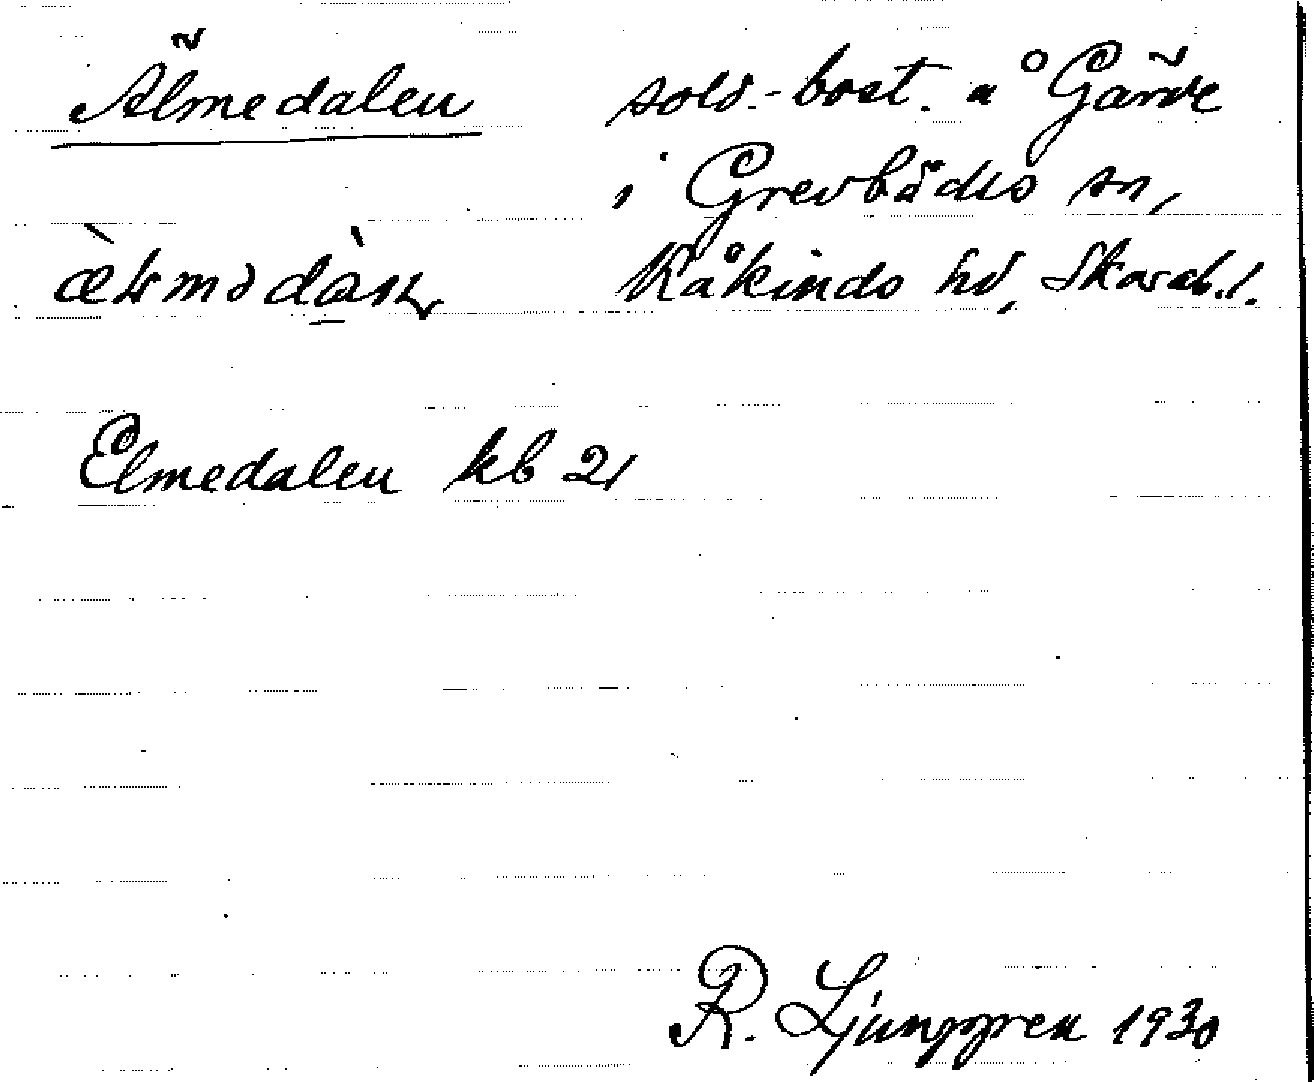 Älmedalen sold.-bost. å Gärde
i Grevbäcks sn,
Kåkinds hd, Skarab.l.
Elmedalen kb 21
R. Ljunggren 1930